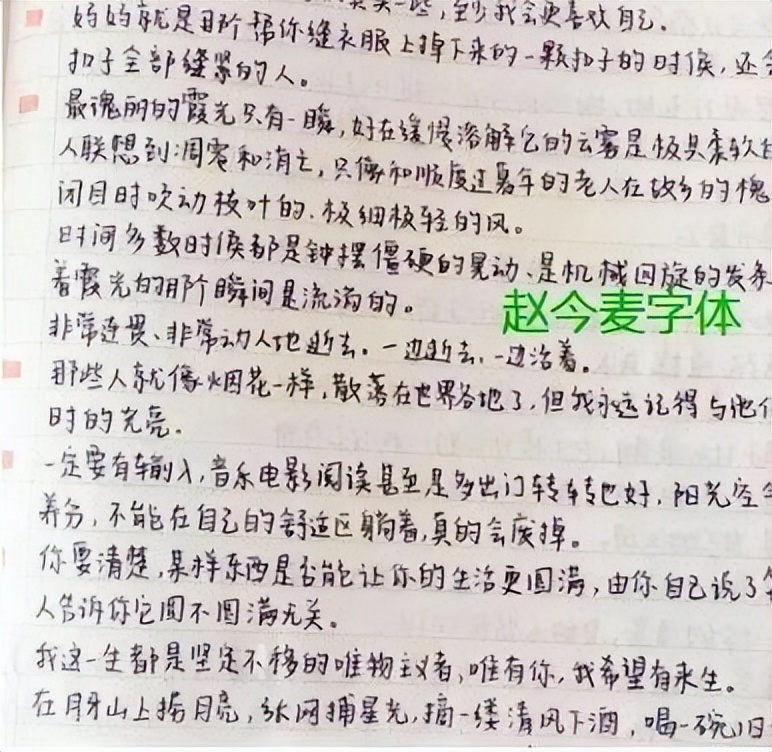 一些,至少我会更喜欢自己.
妈妈就是那个帮你缝衣服上掉下来的一颗扣子的时候,还会
扣子全部缝紧的人。
最瑰丽的霞光只有一瞬,好在缓慢溶解它的云雾是极具柔软
人联想到凋零和消亡,只像和顺度过暮年的老人在故乡的槐
闭目时吹动枝叶的、极细极轻的风。
时间多数时候都是钟摆僵硬的晃动、是机械回旋的发条
着霞光的那个瞬间是流淌的。
赵今麦字体
非常连贯、非常动人地逝去。一边逝去,一边活着。
那些人就像烟花一样,散落在世界各地了,但我永远记得与他们
时的光亮.
一定要有输入,音乐电影阅读甚至是多出门转转也好,阳光空气
养分,不能在自己的舒适区躺着,真的会废掉。
你要清楚,某样东西是否能让你的生活更圆满,由你自己说了算
人告诉你它圆不圆满无关。
我这一生都是坚定不移的唯物主义者,唯有你,我希望有来生。
在月牙山上捞月亮,张网捕星光,摘一缕清风下酒,喝一碗旧